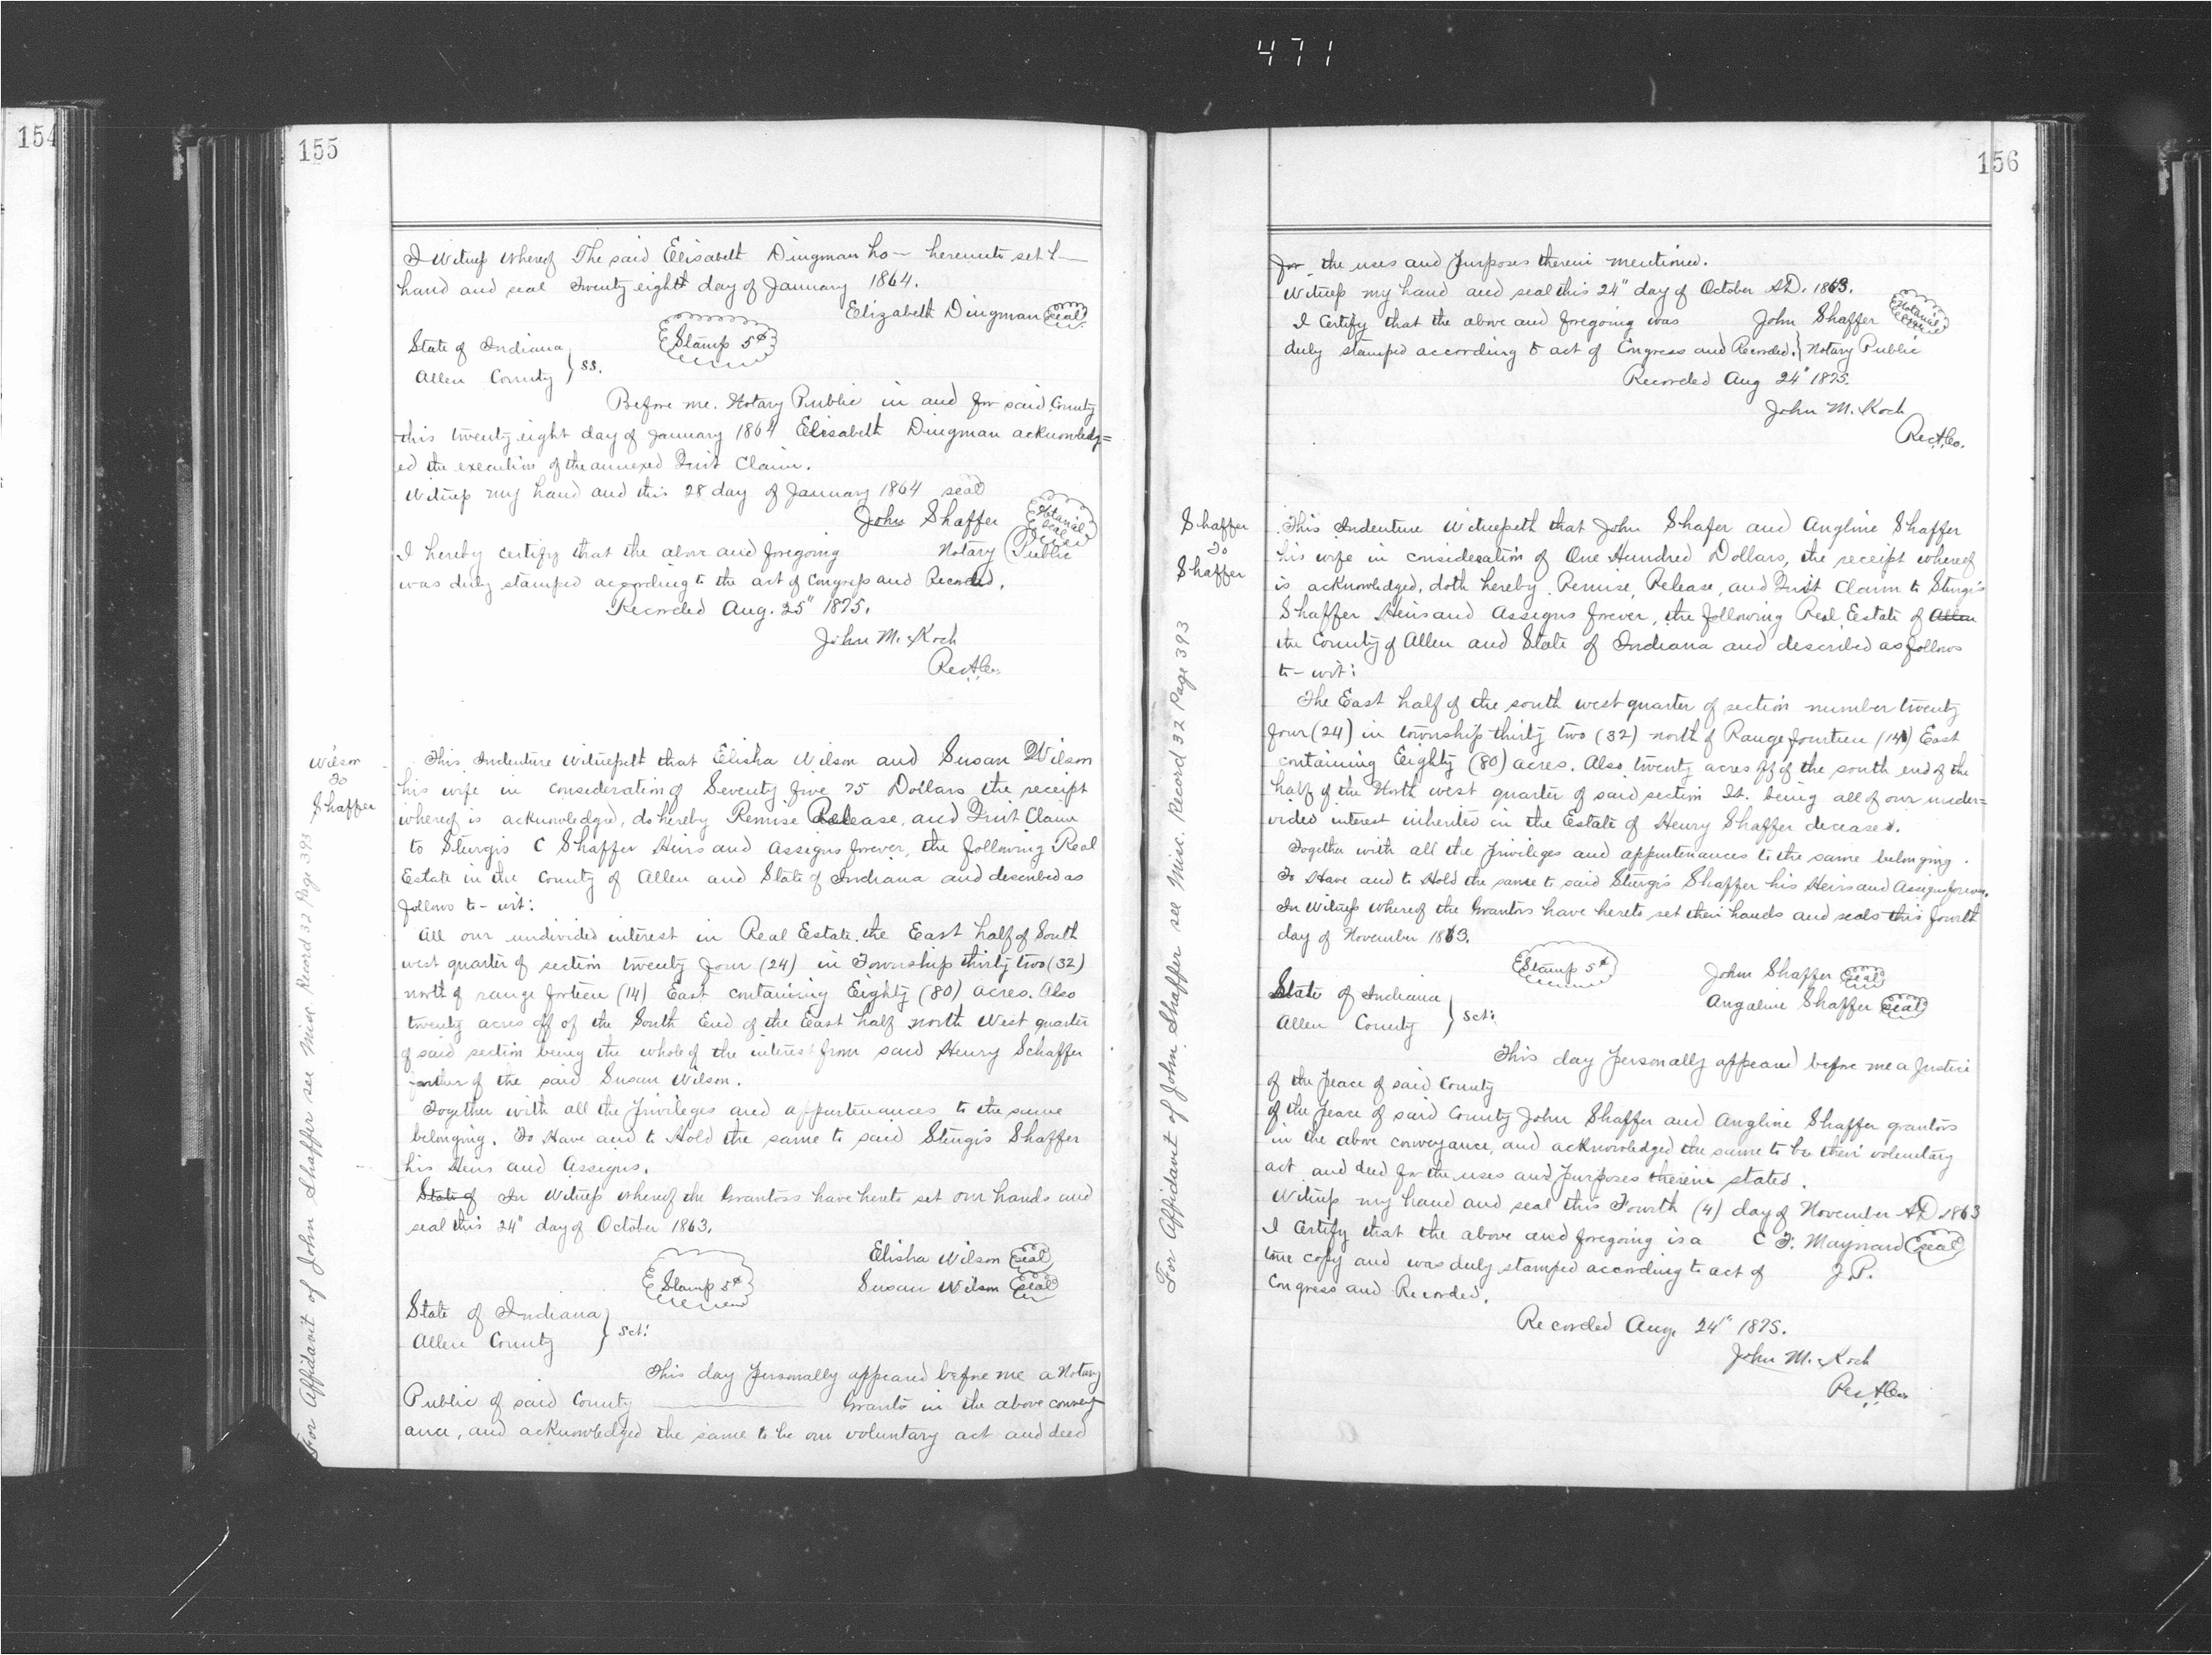 471
154
155
I Witness Whereof The said Elisabeth Dingman ha— hereunto set h—
hand and seal Twenty eight day of January 1864.
Elizabeth Dingman Seal
Stamp 5¢
State of Indiana
Allen County } SS.
Before me. Notary Public in and for said County
this twenty eight day of January 1864 Elisabeth Dingman acknowledg=
ed the execution of the annexed Quit Claim.
Witness my hand and this 28 day of January 1864 seal
John Shaffer Notarial Seal
I hereby certify that the above and foregoing Notary Public
was duly stamped according to the act of Congress and Recorded.
Recorded Aug. 25" 1875.
John M. Koch
Rec A.Co.
Wilson
To
Shaffer
For Affidavit of John Shaffer see Misc. Record 32 Page 393
This Indenture Witnesseth that Elisha Wilson and Susan Wilson
his wife in consideration of Seventy five 75 Dollars the receipt
whereof is acknowledged, do hereby Remise Release, and Quit Claim
to Sturgis C Shaffer Heirs and Assigns forever, the following Real
Estate in the County of Allen and State of Indiana and described as
follows to-wit:
All our undivided interest in Real Estate. the East half of South
west quarter of section twenty four (24) in Township thirty two (32)
north of range forteen (14) East containing Eighty (80) acres. Also
twenty acres off of the South End of the East half north West quarter
of said section being the whole of the interest from said Henry Schaffer
father of the said Susan Wilson.
Together with all the Privileges and appurtenances to the same
belonging. To Have and to Hold the same to said Sturgis Shaffer
his Heirs and Assigns.
State of In Witness whereof the Grantors have hereto set our hands and
seal this 24" day of October 1863.
Elisha Wilson Seal
Stamp 5¢
Susan Wilson Seal
State of Indiana
Allen County } Sct:
This day personally appeared before me a Notary
Public of said County ——— Grantor in the above convey
ance, and acknowledged the same to be our voluntary act and deed
156
for the uses and purposes therein mentioned.
Witness my hand and seal this 24" day of October AD. 1863.
I Certify that the above and foregoing was John Shaffer Notarial Seal
duly stamped according to act of Congress and Recorded. } Notary Public
Recorded Aug 24" 1875.
John M. Koch
Rec A.Co.
Shaffer
To
Shaffer
For Affidavit of John Shaffer see Misc. Record 32 Page 393
This Indenture Witnesseth that John Shafer and Angline Shaffer
his wife in consideration of One Hundred Dollars, the receipt whereof
is acknowledged, doth hereby Remise, Release, and Quit Claim to Sturgis
Shaffer Heirs and Assigns forever, the following Real Estate of Allen
the County of Allen and State of Indiana and described as follows
to-wit:
The East half of the south west quarter of section number twenty
four (24) in township thirty two (32) north of Range fourteen (14) East
containing Eighty (80) acres. Also twenty acres off of the south end of the
half of the North west quarter of said section It. being all of our undi-
vided interest inherited in the Estate of Henry Shaffer deceased.
Together with all the Privileges and appurtenances to the same belonging.
To Have and to Hold the same to said Sturgis Shaffer his Heirs and Assigns forever.
In Witness whereof the Grantors have hereto set their hands and seals this fourth
day of November 1863.
Stamp 5¢
John Shaffer Seal
Angaline Shaffer Seal
State of Indiana
Allen County } Sct:
This day personally appeared before me a Justice
of the Peace of said County
of the Peace of said County John Shaffer and Angline Shaffer grantors
in the above conveyance, and acknowledged the same to be their voluntary
act and deed for the uses and purposes therein stated.
Witness my hand and seal this Fourth (4) day of November AD 1863
I Certify that the above and foregoing is a C F. Maynard Seal
true copy and was duly stamped according to act of J.P.
Congress and Recorded.
Recorded Aug. 24" 1875.
John M. Koch
Rec A.Co.